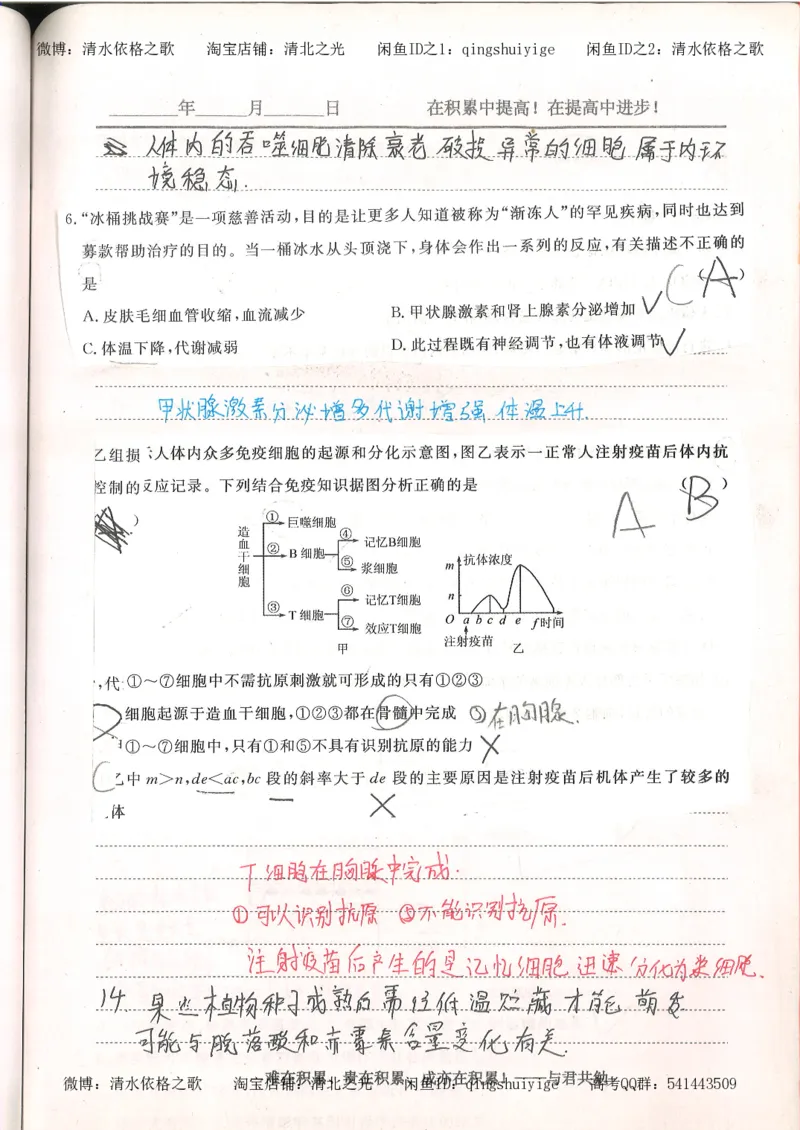 微博：清水依格之歌 淘宝店铺：清北之光 闲鱼ID之1：qingshuiyige 闲鱼ID之2：清水依格之歌
年 月 日 在积累中提高！在提高中进步！
人体内的吞噬细胞清除衰老 破损 异常的细胞 属于内环
境稳态.
6.“冰桶挑战赛”是一项慈善活动,目的是让更多人知道被称为“渐冻人”的罕见疾病,同时也达到
募款帮助治疗的目的。当一桶冰水从头顶浇下,身体会作出一系列的反应,有关描述不正确的
是 ( C A )
A.皮肤毛细血管收缩,血流减少 B.甲状腺激素和肾上腺素分泌增加 ✓
C.体温下降,代谢减弱 D.此过程既有神经调节,也有体液调节 ✓
甲状腺激素分泌增多代谢增强 体温上升.
乙组损 人体内众多免疫细胞的起源和分化示意图,图乙表示一正常人注射疫苗后体内抗
控制的 反应记录。下列结合免疫知识据图分析正确的是 ( B )
A
造血干细胞
① 巨噬细胞
② B 细胞
④ 记忆B细胞
⑤ 浆细胞
③ T 细胞
⑥ 记忆T细胞
⑦ 效应T细胞
甲
抗体浓度
m
n
O a b c d e f 时间
注射疫苗
乙
,代 ①～⑦细胞中不需抗原刺激就可形成的只有①②③
细胞起源于造血干细胞,①②③都在骨髓中完成 ③在胸腺.
①～⑦细胞中,只有①和⑤不具有识别抗原的能力 ✗
乙中 m>n,de<ac,bc 段的斜率大于 de 段的主要原因是注射疫苗后机体产生了较多的
体 ✗
T细胞在胸腺中完成.
①可以识别抗原 ⑤不能识别抗原.
注射疫苗后产生的是记忆细胞 迅速分化为浆细胞.
14. 果些植物种子成熟后需经低温贮藏才能萌发
可能与脱落酸和赤霉素含量变化有关.
难在积累！贵在积累！成亦在积累！——与君共勉
微博：清水依格之歌 淘宝店铺：清北之光 闲鱼ID：qingshuiyige 高考QQ群：541443509